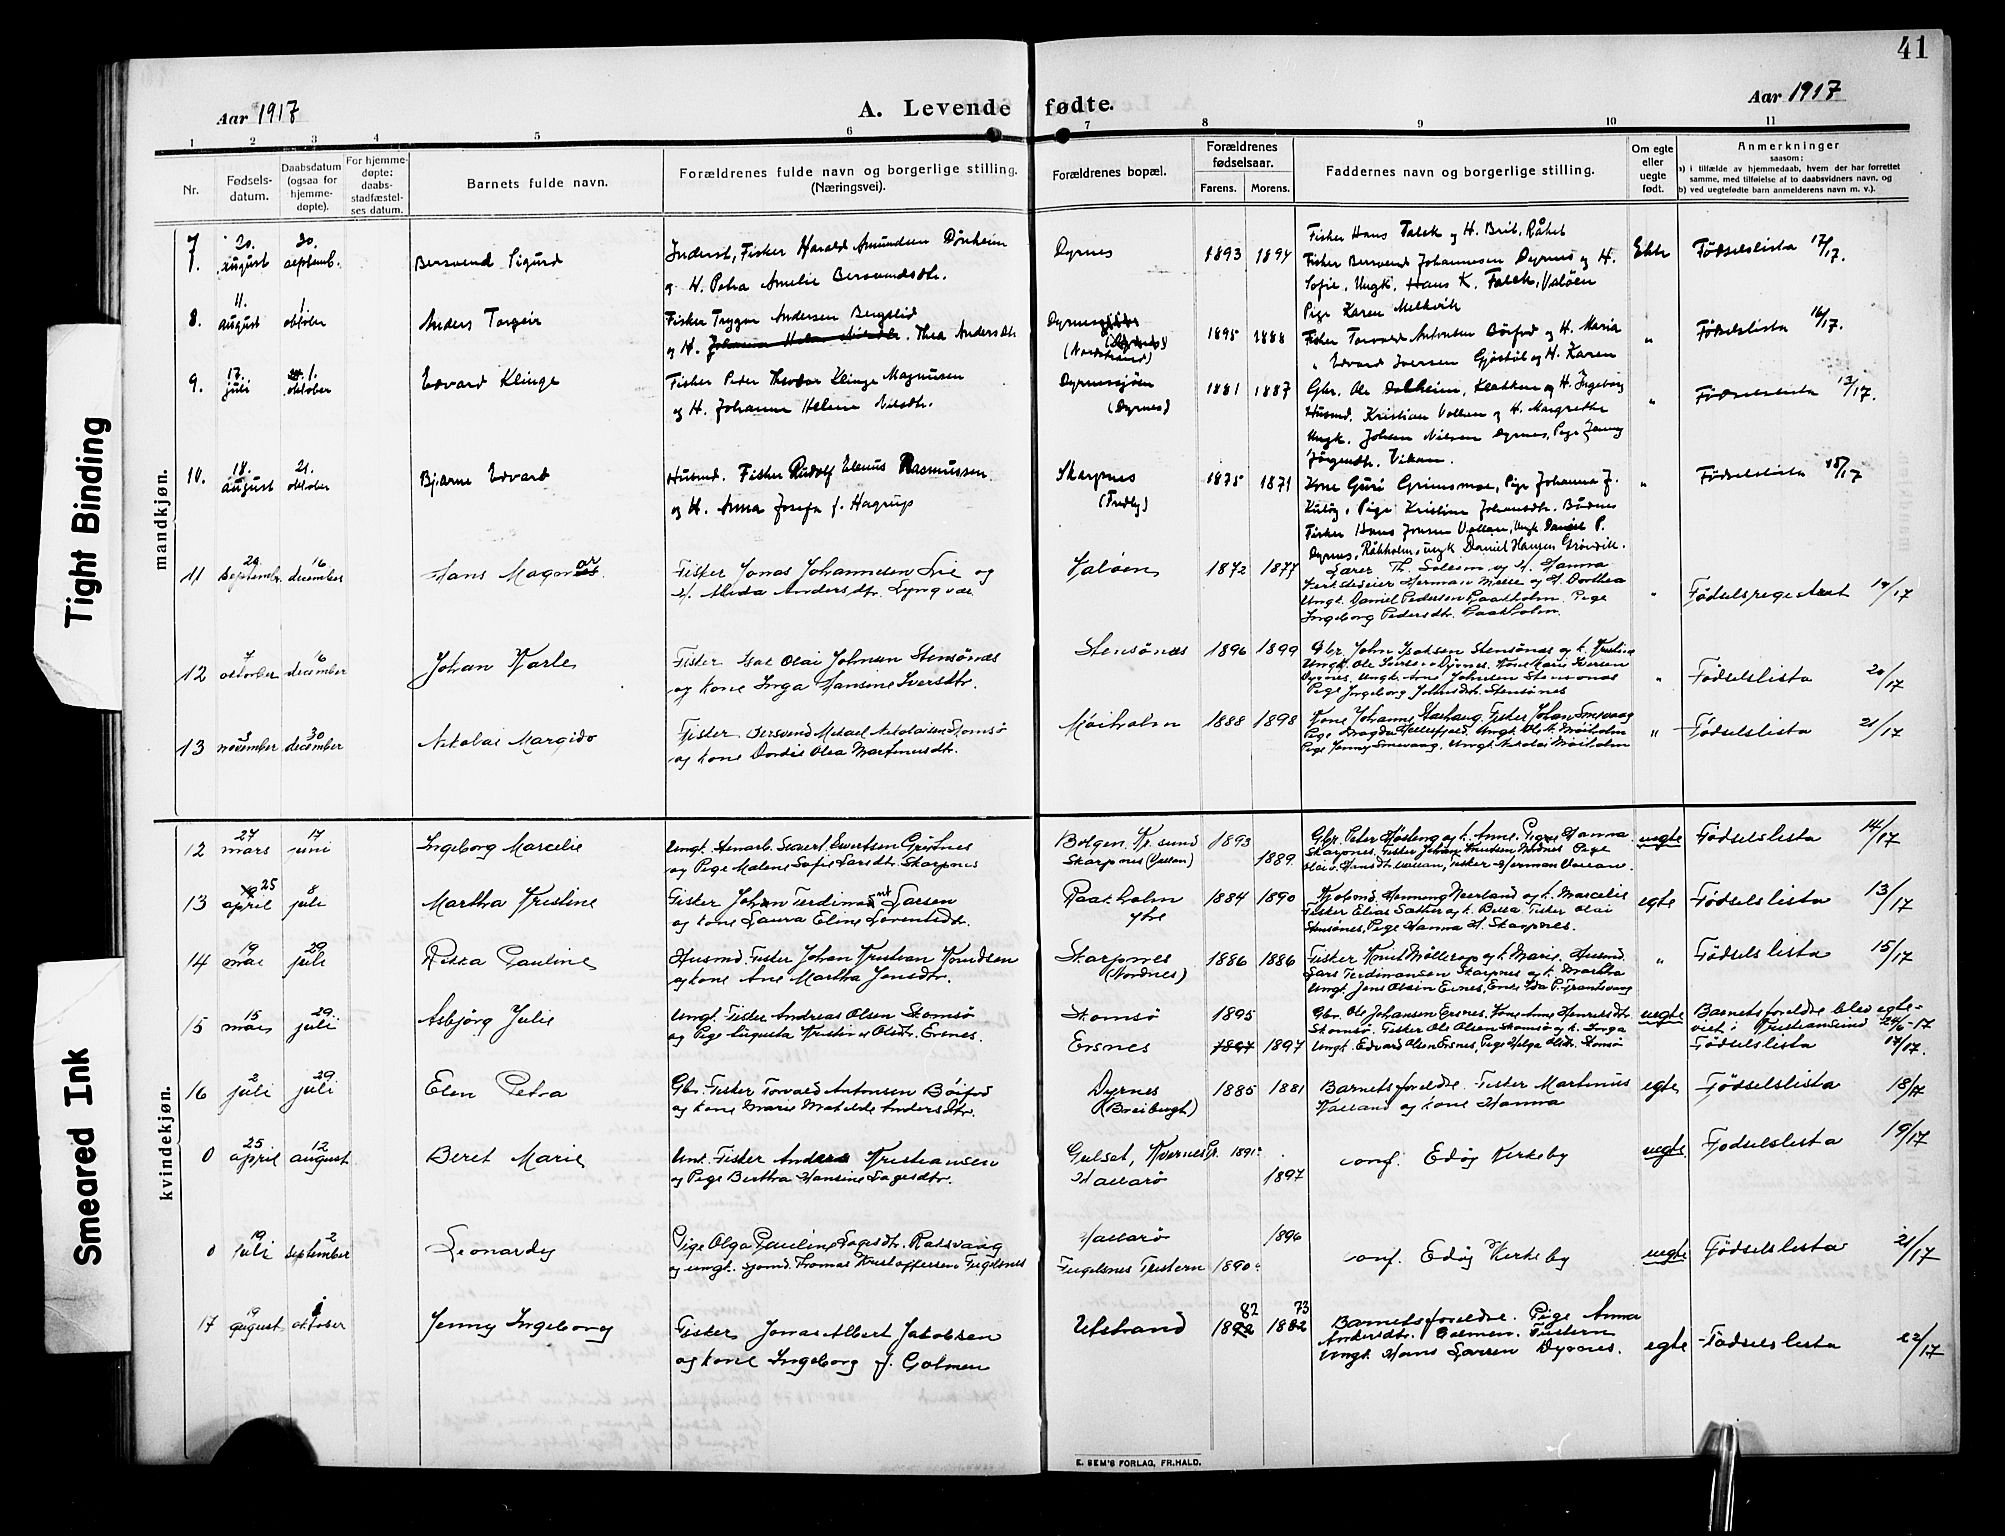 41
Aar 1917
A. Levende fødte.
Aar 1917
1 2 3 4 5 6 7 8 9 10 11
Nr.
Fødsels-
datum.
Daabsdatum
(ogsaa for
hjemme-
døpte).
For hjemme-
døpte:
daabs-
stadfæstel-
ses datum.
Barnets fulde navn.
Forældrenes fulde navn og borgerlige stilling.
(Næringsvei).
Forældrenes bopæl.
Forældrenes
fødselsaar.
Farens. Morens.
Faddernes navn og borgerlige stilling.
Om egte
eller
uegte
født.
Anmerkninger
saasom:
a) i tilfælde av hjemmedaab, hvem der har forrettet
samme, med tilføielse af to daabsvidners navn, og
b) ved uegtefødte barn anmelderens navn m. v.).
mandkjøn.
7. 20. august 30. septemb. Bersvend Sigurd
Inderst, Fisker Harald Amundsen Dönheim
og H. Petra Amelie Bersvendsdtr.
Dyrnes 1893 1894
Fisker Hans Falck og H. Brit, Råket
Fisker Bersvend Johannesen Dyrnes og H.
Sofie, Ungk. Hans K. Falck, Valöen
Pige Karen Melkvik
Ekte Fødselslista 17/17.
8. 11. august 1. oktober Anders Torgeir
Fisker Trygve Andersen Bergslid
og H. Thea Andersdtr
(Nordstrand)
1895 1888
Fisker Torvald Antonsen Böifod og H. Maria
" Edvard Iversen Gjøstöl og H. Karen
" Fødselslista 16/17.
9. 17. juli 1. oktober Edvard Klinge
Fisker Peder Theodor Klinge Magnusen
og H. Johanna Helene Nilsdtr.
Dyrnessjöen
(Dyrnes)
1881 1887
Gbr. Ole Dalheim, Klakken og H. Ingeborg
Husmd. Kristian Vollen og H. Margrethe
Ungk. Johan Nilsen Dyrnes, Pige Jenny
Jörgendtr. Vikan.
" Fødselslista 13/17.
10. 18. august 21. oktober Bjarne Edvard
Husmd. Fisker Rudolf Elenus Rasmussen
og H. Anna Josefa f. Hagrup
Skarpnes
(Fredly)
1875 1871
Kone Guri Grimsmoe, Pige Johanna J.
Pige Kristine Johansdtr. Bådnes
Fisker Hans Jonsen Vollan, Ungk Daniel P.
Dyrnes, Råkholm, ungk. Daniel Hansen Grönvik.
" Fødselslista 18/17
11 29 septembr. 16 december Hans Magnar
Fisker Jonas Johannesen Lie og
H. Alida Andersdtr. Lyngvær
Valöen 1872 1877
Lærer Th. Solesm og H. Hanna
Verkseier Herman Malle og H. Dorthea
Ungk. Daniel Pedersen Raakholm. Pige
Ingeborg Pedersdtr. Raakholm.
" Fødselsregistret 19/17
12 7 oktober 16 december Johan Karle
Fisker Isak Olai Johnsen Stensönes
og kone Inga Hansine Iversdtr.
Stensönes 1896 1899
Gbr. John Isaksen Stensönes og k. Kristina
Ungk. Ole Iversen Dyrnes. Kone Marie Iversen
Dyrnes. Ungk. Arne Johnsen Stensönes
Pige Ingeborg Johnsdtr. Stensönes
" Fødselslista 20/17
13 3 november 30 december Nikolai Margido
Fisker Bersvend Mikael Nikolaisen Skomsö
og kone Dordie Olea Martinusdtr.
Möiholm 1888 1898
Kone Johanne Staehaug. Fisker Johan Smevaag
Pige Magda Hellesfjord. Ungk. Ole N. Möiholm
Pige Jenny Smevaag, Ungk. Nikolai Möiholm
" Fødselslista 21/17
kvindekjøn.
12 27 mars 17 juni Ingeborg Marcelie
Ungk. Stenarb. Sivert Evertsen Gripnes
og Pige Malene Sofie Larsdtr. Skarpnes
Bolgen. Kr. sund
Skarpnes (Vollan)
1893
1889
Gbr. Peter Høsteng og k. Anne. Pige Hanna
Skarpnes, Fisker Johan Knudsen Nordnes Pige
Fisker Herman Vollan.
uegte Fødselslista 14/17
13 25 april 8 juli Martha Kristine
Fisker Johan Ferdinant Larsen
og kone Laura Eline Lorentsdtr.
Raakholm
ytre
1884 1890
Kjöbmd. Henning Neerland og k. Marcelie
Fisker Elias Sæther og k. Berta. Fisker Olai
Stensönes, Pige Hanna H. Skarpnes.
egte Fødselslista 13/17
14 19 mai 29 juli Petra Pauline
Husmd. Fisker Johan Kristian Knudsen
og kone Ane Martha Jensdtr.
Skarpnes
(Nordnes)
1886 1886
Fisker Knut Möllerop og k. Marie. Husmd.
Lars Ferdinansen Skarpnes og k. Martha
Ungk. Jens Olsen Ersnes, Enke Ida P. Grantsvaag
" Fødselslista 15/17
15 15 mars 29 juli Asbjörg Julie
Ungk. Fisker Andreas Olsen Skomsö
og Pige Augusta Kristine Olsdtr. Ersnes.
Skomsö 1895
Ersnes 1897 1897
Gbr. Ole Johansen Ersnes. Kone Ane Henriksdtr
Skomsö. Fisker Ole Olsen Skomsö og k. Inga
Ungk. Edvard Olsen Ersnes, Pige Helga Olsdtr. Skomsö
uegte Barnets foreldre blev egte-
viet i Kristiansund 24/6-17
Fødselslista 17/17.
16 2 juli 29 juli Elen Petra
Gbr. Fisker Torvald Antonsen Böifod
og kone Marie Matilde Andersdtr.
Dyrnes
(Breibugt)
1885 1881
Barnets foreldre. Fisker Martinus
Kalland og kone Hanna
egte Fødselslista 18/17
0 25 april 12 august Beret Marie
Unk. Fisker Anders Kristiansen
og Pige Berthea Hansine Lagesdtr.
Gulset, Kvernes Pr. 1891
Hallarö 1897
conf. Edöy Kirkeby
uegte Fødselslista 19/17
0 19 juli 2 september Leonardy
Pige Olga Pauline Lagesdtr. Ratsvaag
og ungk. sjömd. Thomas Kristoffersen Fugelsnes
Hallarö 1896
Fugelsnes Tustern 1890
conf. Edöy Kirkeby
uegte Fødselslista 21/17
17 19 august oktober Jenny Ingeborg
Fisker Jonas Albert Jakobsen
og kone Ingeborg f. Golmen
Ulstrand 82 1892 73 1882
Barnets foreldre. Pige Anna
Andersdtr. Golmen. Tustern
Ungk. Hans Larsen Dyrnes.
egte Fødselslista 22/17
E. SEM'S FORLAG, FR.HALD.
Tight Binding
Smeared Ink